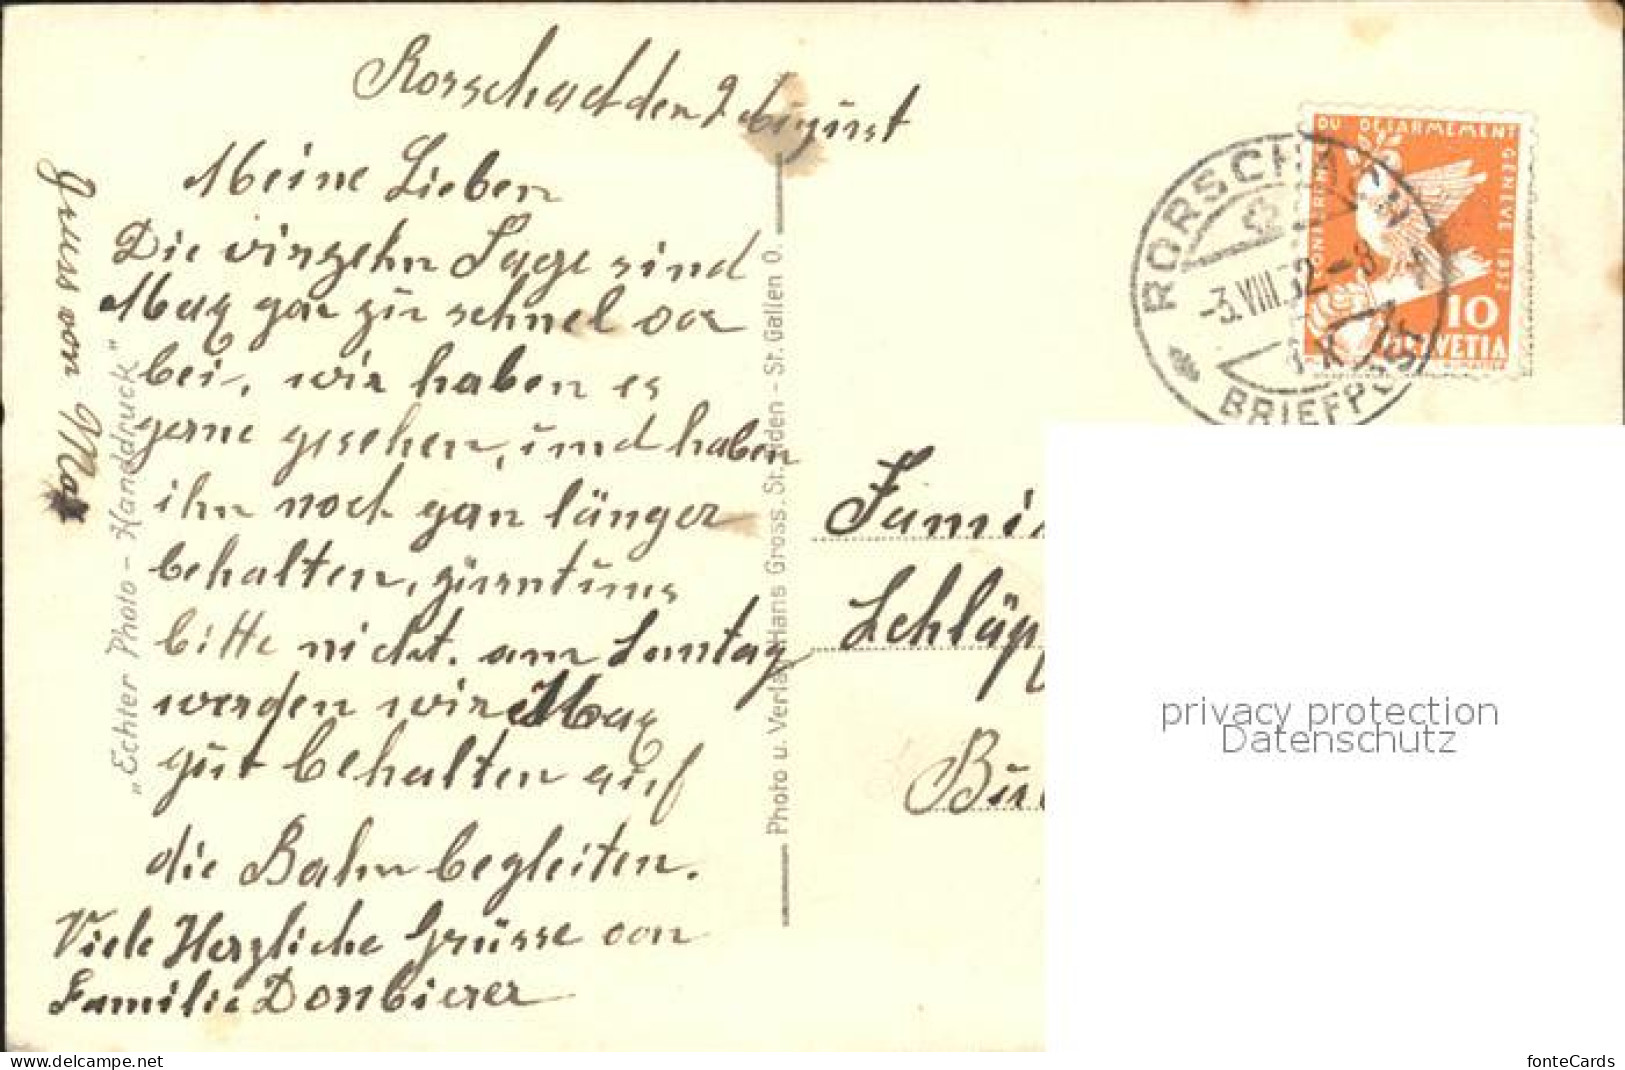 Rorschach den 2 August
Meine Lieben
Die virzehn Tage sind
Max gar zu schnel vor
bei, wir haben es
gerne gesehen, und haben
ihn noch gan länger
behalten, zürnt uns
bitte nicht. am Sonntag
werden wir Max
gut behalten auf
die Bahn begleiten.
Viele Herzliche Grüsse von
Familie Dornbierer
Gruss von Max
"Echter Photo - Handdruck"
Photo u. Verlag Hans Gross, St. Fiden - St. Gallen O.
RORSCHACH
-3.VIII.32-8
BRIEFPOST
CONFERENCE DU DESARMEMENT GENEVE 1932
10
HELVETIA
Famil
Schläpf
Bur
privacy protection
Datenschutz
www.delcampe.net
fonteCards